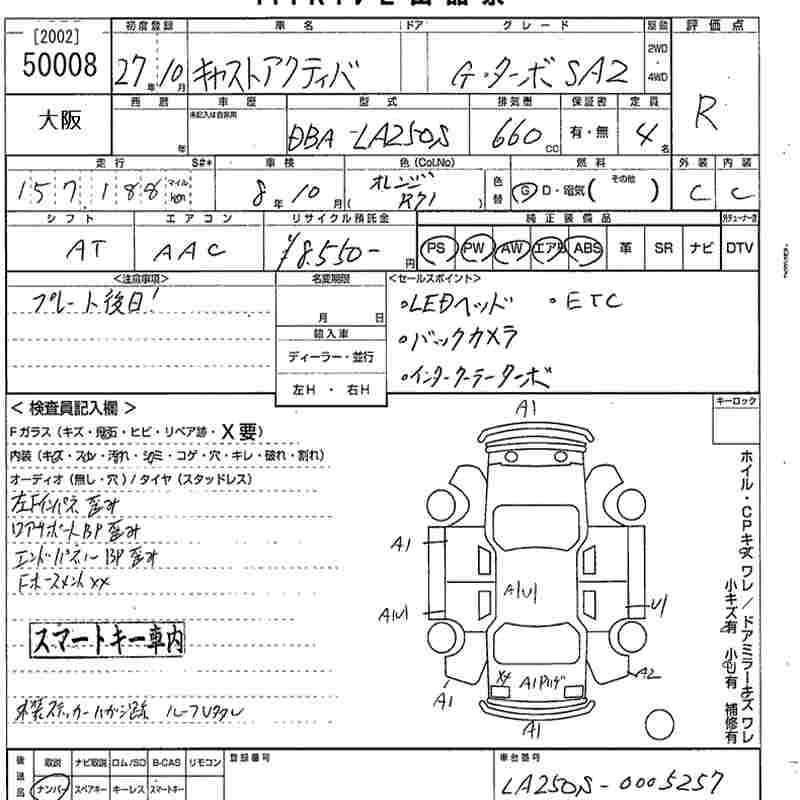 [2002]
50008
初度登録 車名 ドア グレード 駆動 評価点
27年10月 キャストアクティバ G・ターボ SA2 2WD・4WD R
大阪
西暦 車歴 型式 排気量 保証書 定員
年 未記入は自家用 DBA-LA250S 660cc 有・無 4名
走行 S#* 車検 色(Col.No) 燃料 外装 内装
157,188 マイル km 8年10月 (オレンジ R71) 色替 G D・電気( その他 ) C C
シフト エアコン リサイクル預託金 純正装備品
AT AAC ¥8,550-円 PS PW AW エアB ABS 革 SR ナビ DTV
<注意事項> 名変期限 <セールスポイント>
プレート後日! 月 日 ・LEDヘッド ・ETC
輸入車 ・バックカメラ
ディーラー・並行
左H ・ 右H ・インタークーラーターボ
<検査員記入欄> キーロック
Fガラス(キズ・飛石・ヒビ・リペア跡・X要)
内装(キズ・スレ・汚れ・シミ・コゲ・穴・キレ・破れ・割れ)
オーディオ(無し・穴)/タイヤ(スタッドレス)
左Fインパネ歪み
リアサポートBP歪み
エンドパネルBP歪み
FホースメントXX
スマートキー車内
外装ステッカーハガシ跡 ルーフUタタレ
A1
A1
A1U1
A1U1
U1
A1
XX
A1
A2
A1
ホイル・CPキズ ワレ/ドアミラーキズ ワレ
小キズ有 小U有 補修有
後送品 取説 ナビ取説 ロム/SD B-CAS リモコン 登録番号 車台番号
ナンバー スペアキー キーレス スマートキー LA250S-0005257